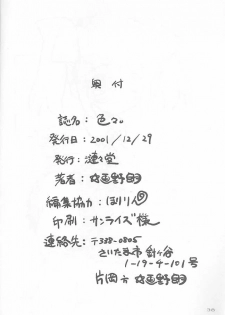 奥付
誌名:色々
発行日:2001/12/29
発行:漣々堂
著者:
編集協力:ほりりん
印刷:サンライズ様
連絡先:〒338-0805
さいたま市 針ヶ谷
1-19-4-101号
片岡方